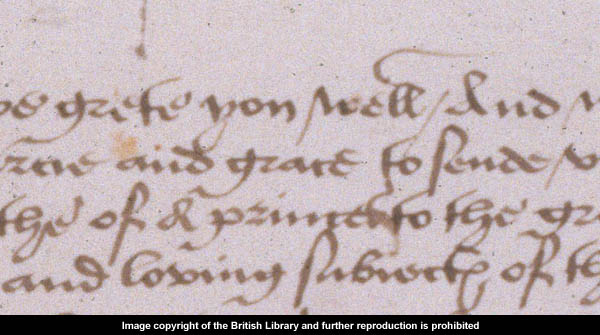 we grete you well / And w
ercie and grace to sende v
the of A princes to the gre
and loving subiectes of th
Image copyright of the British Library and further reproduction is prohibited